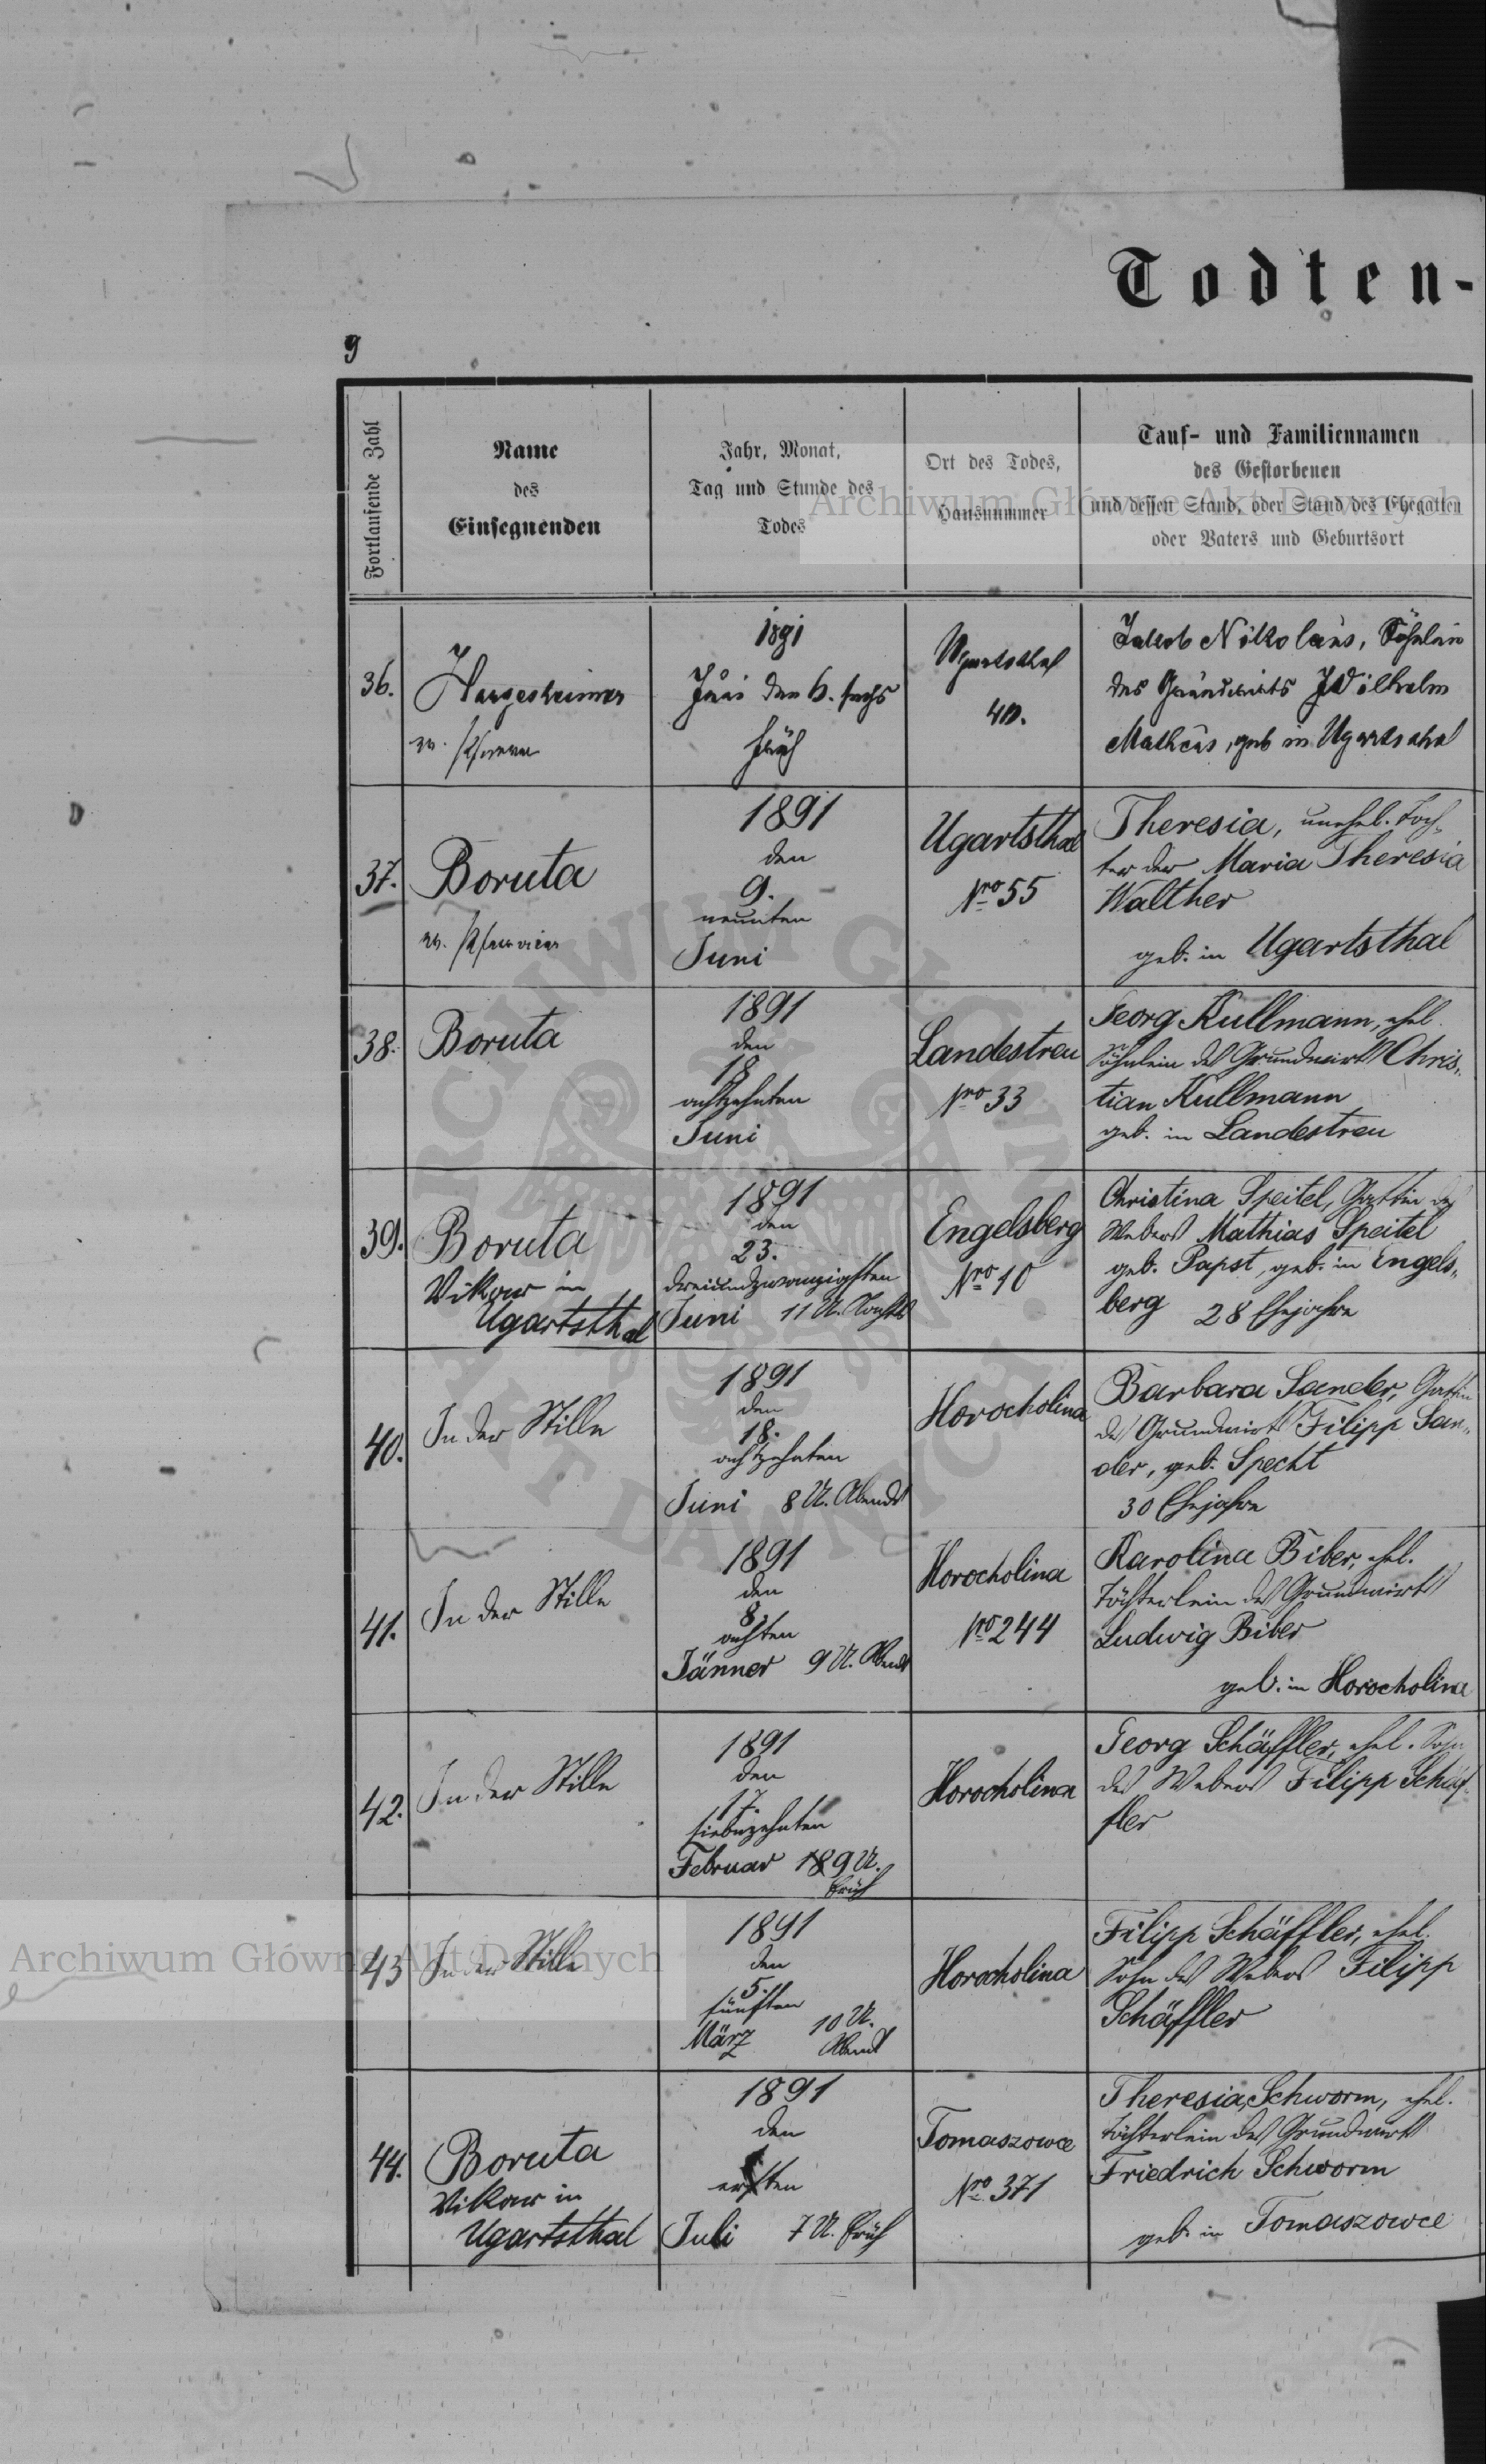 Todten-
9
Fortlaufende Zahl
Name
des
Einsegnenden
Jahr, Monat,
Tag und Stunde des
Todes
Ort des Todes,
Hausnummer
Tauf- und Familiennamen
des Gestorbenen
und dessen Stand, oder Stand des Ehegatten
oder Vaters und Geburtsort
36.
Hargesheimer
ev. Pfarrer
1891
Juni den 6. sechs
früh
Ugartsthal
40.
Jakob Nikolaus, Söhnlein
des Grundwirts Wilhelm
Matheus, geb in Ugartsthal
37.
Boruta
ev. Pfarrvicar
1891
den
9.
neunten
Juni
Ugartsthal
Nro 55
Theresia, unehel. Toch-
ter der Maria Theresia
Walther
geb. in Ugartsthal
38.
Boruta
1891
den
18
achtzehnten
Juni
Landestreu
Nro 33
Georg Kullmann, ehel.
Söhnlein des Grundwirts Chris-
tian Kullmann
geb. in Landestreu
39.
Boruta
Vikar in
Ugartsthal
1891
den
23.
dreiundzwanzigsten
Juni 11 U. Nachts
Engelsberg
Nro 10
Christina Speitel, Gattin des
Webers Mathias Speitel
geb. Papst, geb. in Engels-
berg 28 Ehejahre
40.
In der Stille
1891
den
18.
achtzehnten
Juni 8 U. Abends
Horocholina
Barbara Sander, Gattin
des Grundwirts Filipp San-
der, geb. Specht
30 Ehejahre
41.
In der Stille
1891
den
8.
achten
Jänner 9 U. Abends
Horocholina
Nro 244
Karolina Biber, ehel.
Töchterlein des Grundwirts
Ludwig Biber
geb. in Horocholina
42.
In der Stille
1891
den
17.
siebzehnten
Februar 9 U.
Früh
Horocholina
Georg Schäffler, ehel. Sohn
des Webers Filipp Schäf-
fler
43
In der Stille
1891
den
5.
fünften
März 10 U.
Abends
Horocholina
Filipp Schäffler, ehel.
Sohn des Webers Filipp
Schäffler
44.
Boruta
Vikar in
Ugartsthal
1891
den
1
ersten
Juli 7 U. Früh
Tomaszowce
Nro 371
Theresia Schworm, ehel.
Töchterlein des Grundwirts
Friedrich Schworm
geb. in Tomaszowce
Archiwum Główne Akt Dawnych
Archiwum Główne Akt Dawnych
ARCHIWUM GŁÓWNE
AKT DAWNYCH